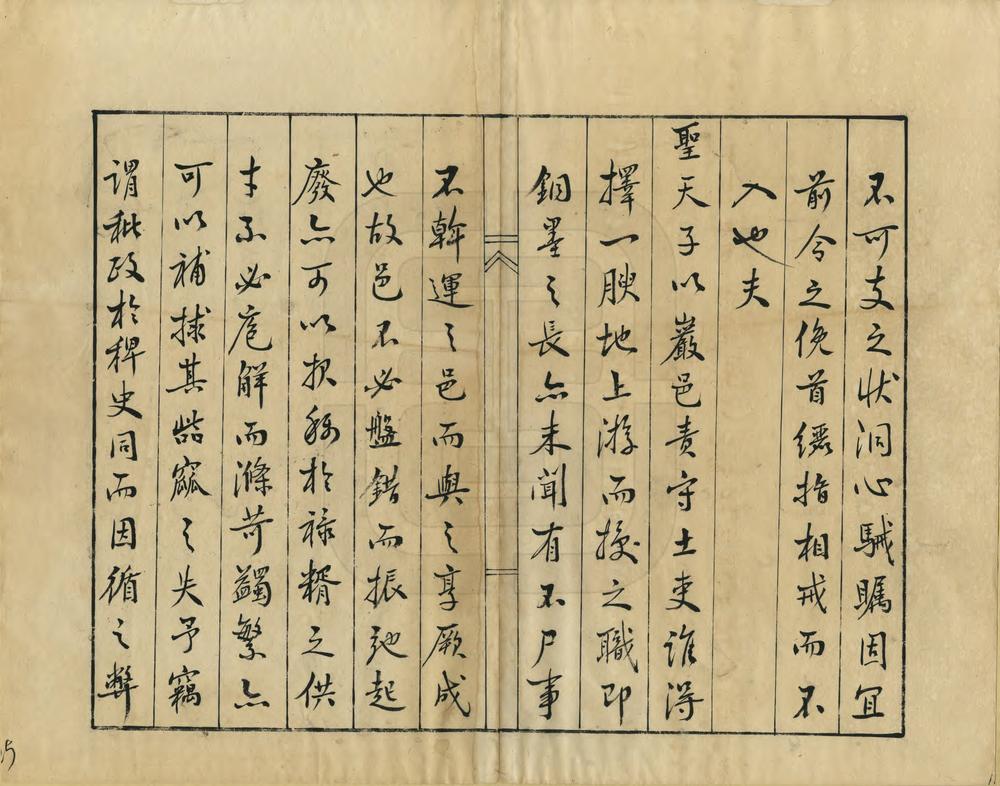 不可支之狀洞心駴矚固宜
前令之俛首縲指相戒而不
入也夫
聖天子以巖邑責守土吏誰得
擇一腴地上游而授之職即
銅墨之長亦未聞有不尸事
不斡運之邑而與之享厥成
也故邑不必盤錯而振弛起
廢亦可以报稱於祿糈之供
才不必庖解而滌苛蠲繁亦
可以補捄其呰窳之失予竊
謂秕政於稗史同而因循之弊